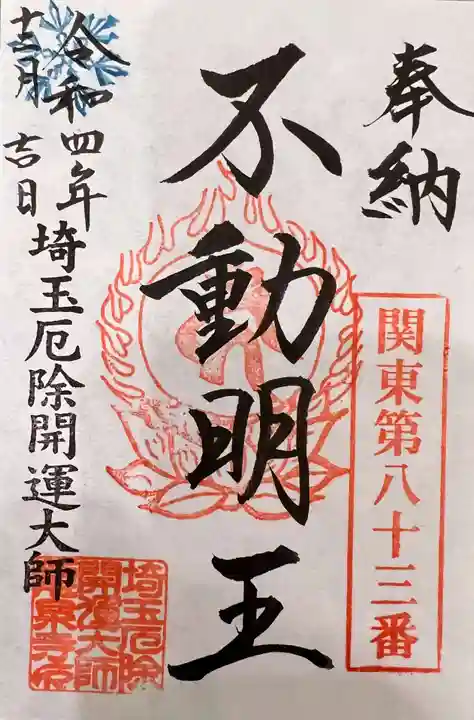 奉納
関東第八十三番
不動明王
令和四年
十二月
吉日
埼玉厄除開運大師
埼玉厄除
開運大師
龍泉寺印